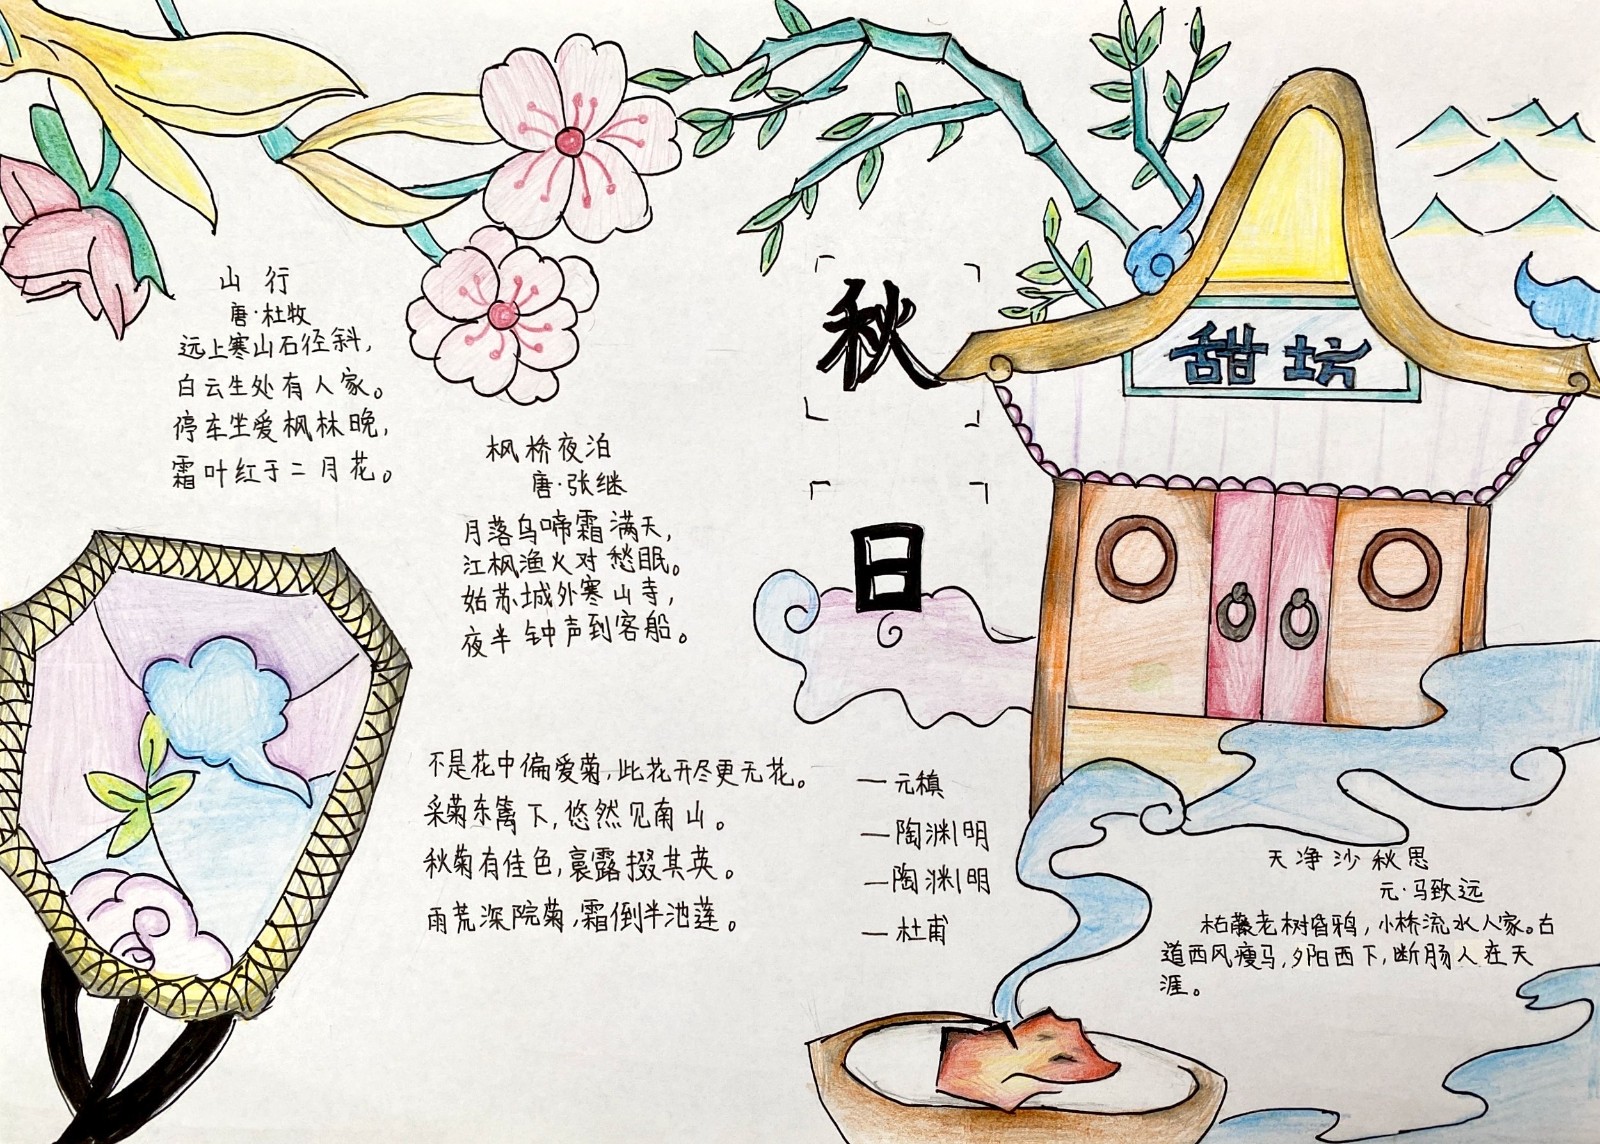 山行
唐·杜牧
远上寒山石径斜，
白云生处有人家。
停车坐爱枫林晚，
霜叶红于二月花。
枫桥夜泊
唐·张继
月落鸟啼霜满天，
江枫渔火对愁眠。
姑苏城外寒山寺，
夜半钟声到客船。
秋
日
甜坊
不是花中偏爱菊，此花开尽更无花。 —元稹
采菊东篱下，悠然见南山。 —陶渊明
秋菊有佳色，裛露掇其英。 —陶渊明
雨荒深院菊，霜倒半池莲。 —杜甫
天净沙秋思
元·马致远
枯藤老树昏鸦，小桥流水人家。古
道西风瘦马，夕阳西下，断肠人在天
涯。